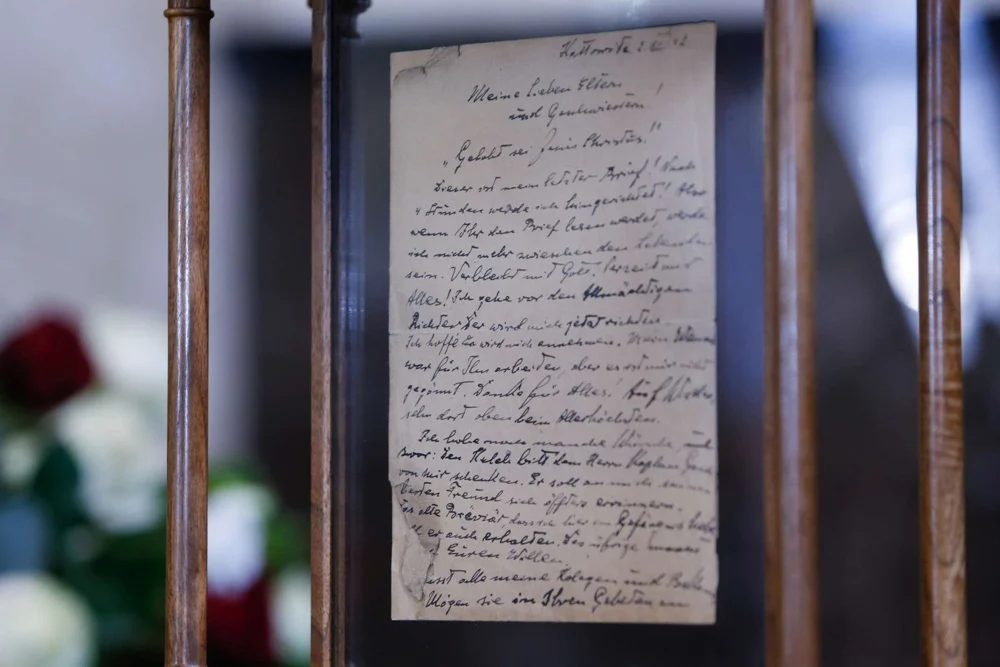 Kattowitz 2 XII 42
Meine Lieben Eltern
und Geschwistern!
"Gelobt sei Jesus Christus!"
Dieser ist mein letzter Brief! Nach
4 Stunden werde ich hingerichtet! Also
wenn Ihr den Brief lesen werdet, werde
ich nicht mehr zwischen den Lebenden
sein. Verbleibt mit Gott! Verzeiht mir
Alles! Ich gehe vor den Allmächtigen
Richter. Er wird mich jetzt richten.
Ich hoffe Er wird mich annehmen. Mein
war für Ihn arbeiten, aber es ist mir nicht
gegönnt. Danke für Alles! Auf Wieder
sehn dort oben beim Allerhöchsten.
Ich habe noch manche Wünsche, und
zwar: Den Kelch bitt dem Herrn Kaplan
von mir schenken. Er soll an mich seinen
besten Freund sich öfters erinnern.
alte Brevier, dass ich hier im Gefängnis
er auch erhalten. Das übrige
Euren Willen.
alle meine Kolegen und
Mögen sie in Ihren Gebeten an